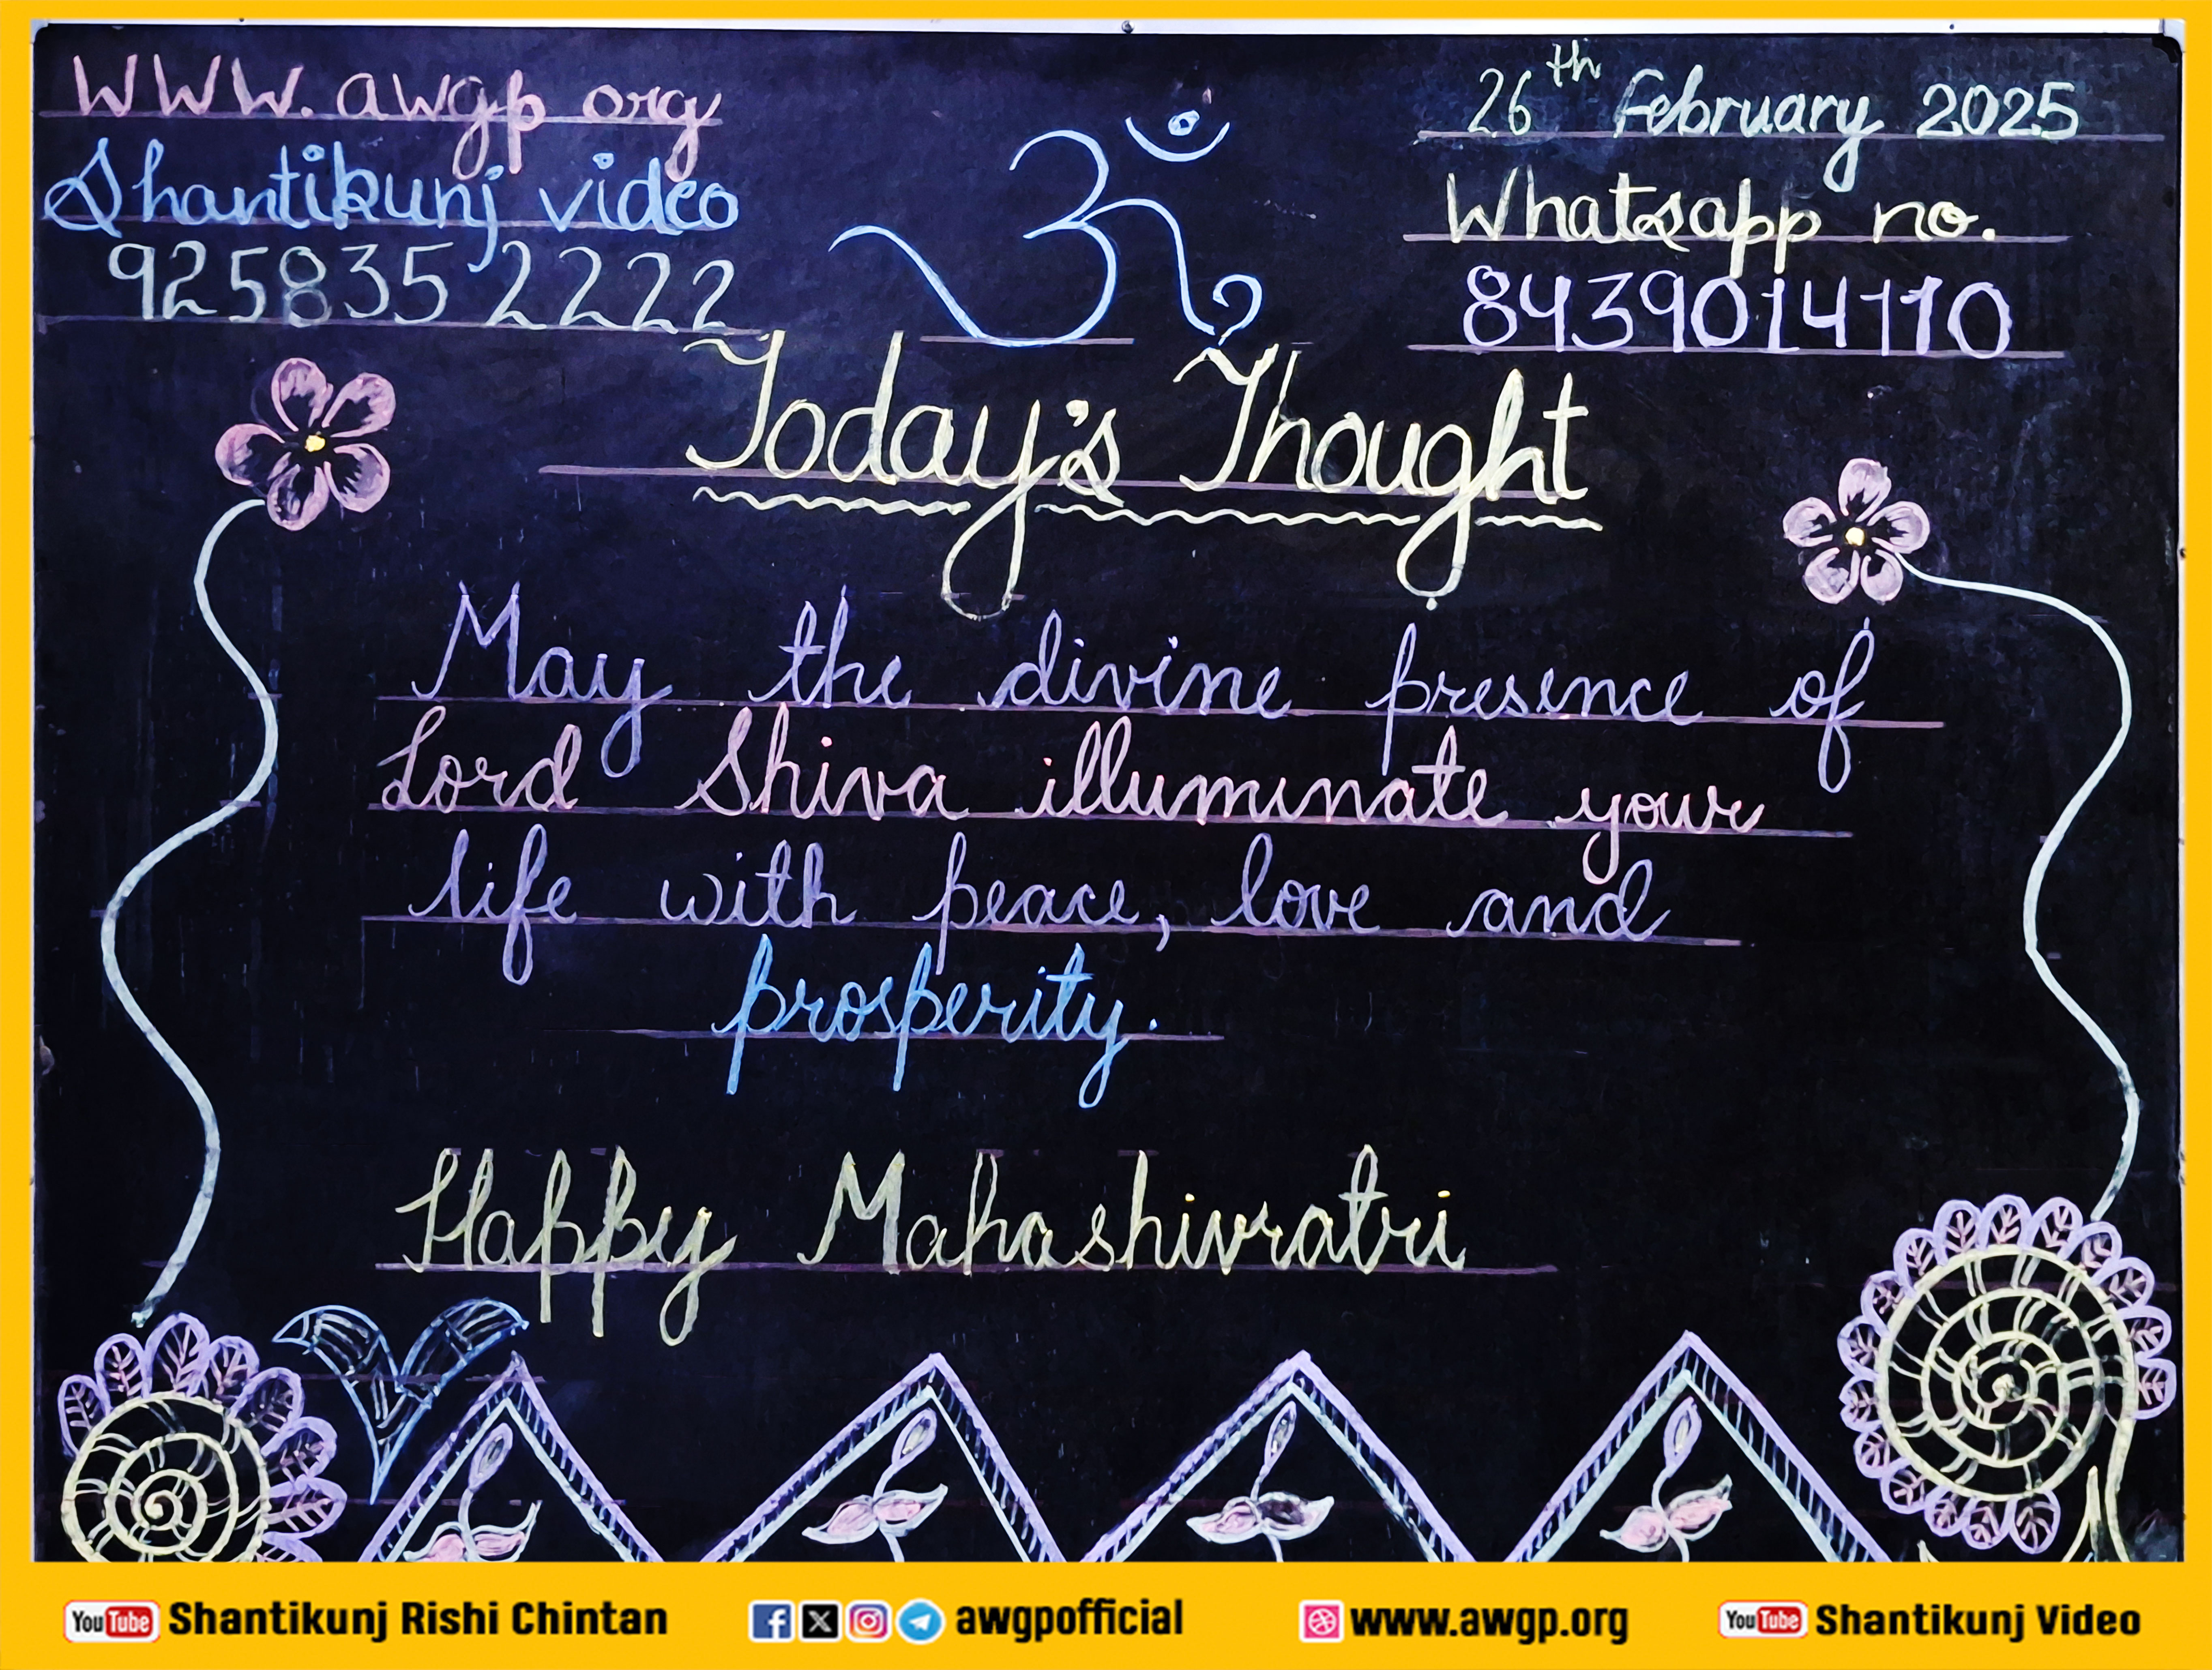 www.awgp org
Shantikunj video
9258352222
ॐ
26th February 2025
Whatsapp no.
8439014110
Today's Thought
May the divine presence of
Lord Shiva illuminate your
life with peace, love and
prosperity.
Happy Mahashivratri
YouTube Shantikunj Rishi Chintan
awgpofficial
www.awgp.org
YouTube Shantikunj Video